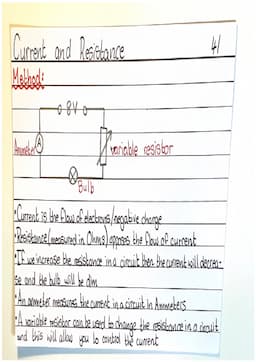 Current and Resistance 4/
Method:
8V
Ammeter A variable resistor
Bulb
•Current is the flow of electrons/negative charge
•Resistance (measured in Ohms) opposes the flow of current
•If we increase the resistance in a circuit then the current will decrea-
se and the bulb will be dim
•An ammeter measures the current in a circuit in Ammeters
•A variable resistor can be used to change the resistance in a circuit
and this will allow you to control the current